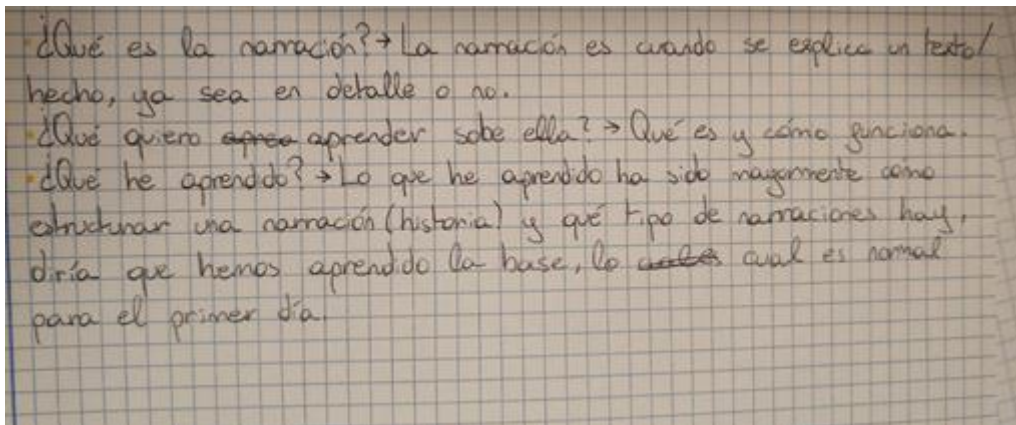 ¿Qué es la narración? → La narración es cuando se explica un texto/
hecho, ya sea en detalle o no.
¿Qué quiero aprender sobe ella? → Qué es y cómo funciona.
¿Qué he aprendido? → Lo que he aprendido ha sido mayormente cómo
estructurar una narración (historia) y qué tipo de narraciones hay,
diría que hemos aprendido la base, lo cual es normal
para el primer día.